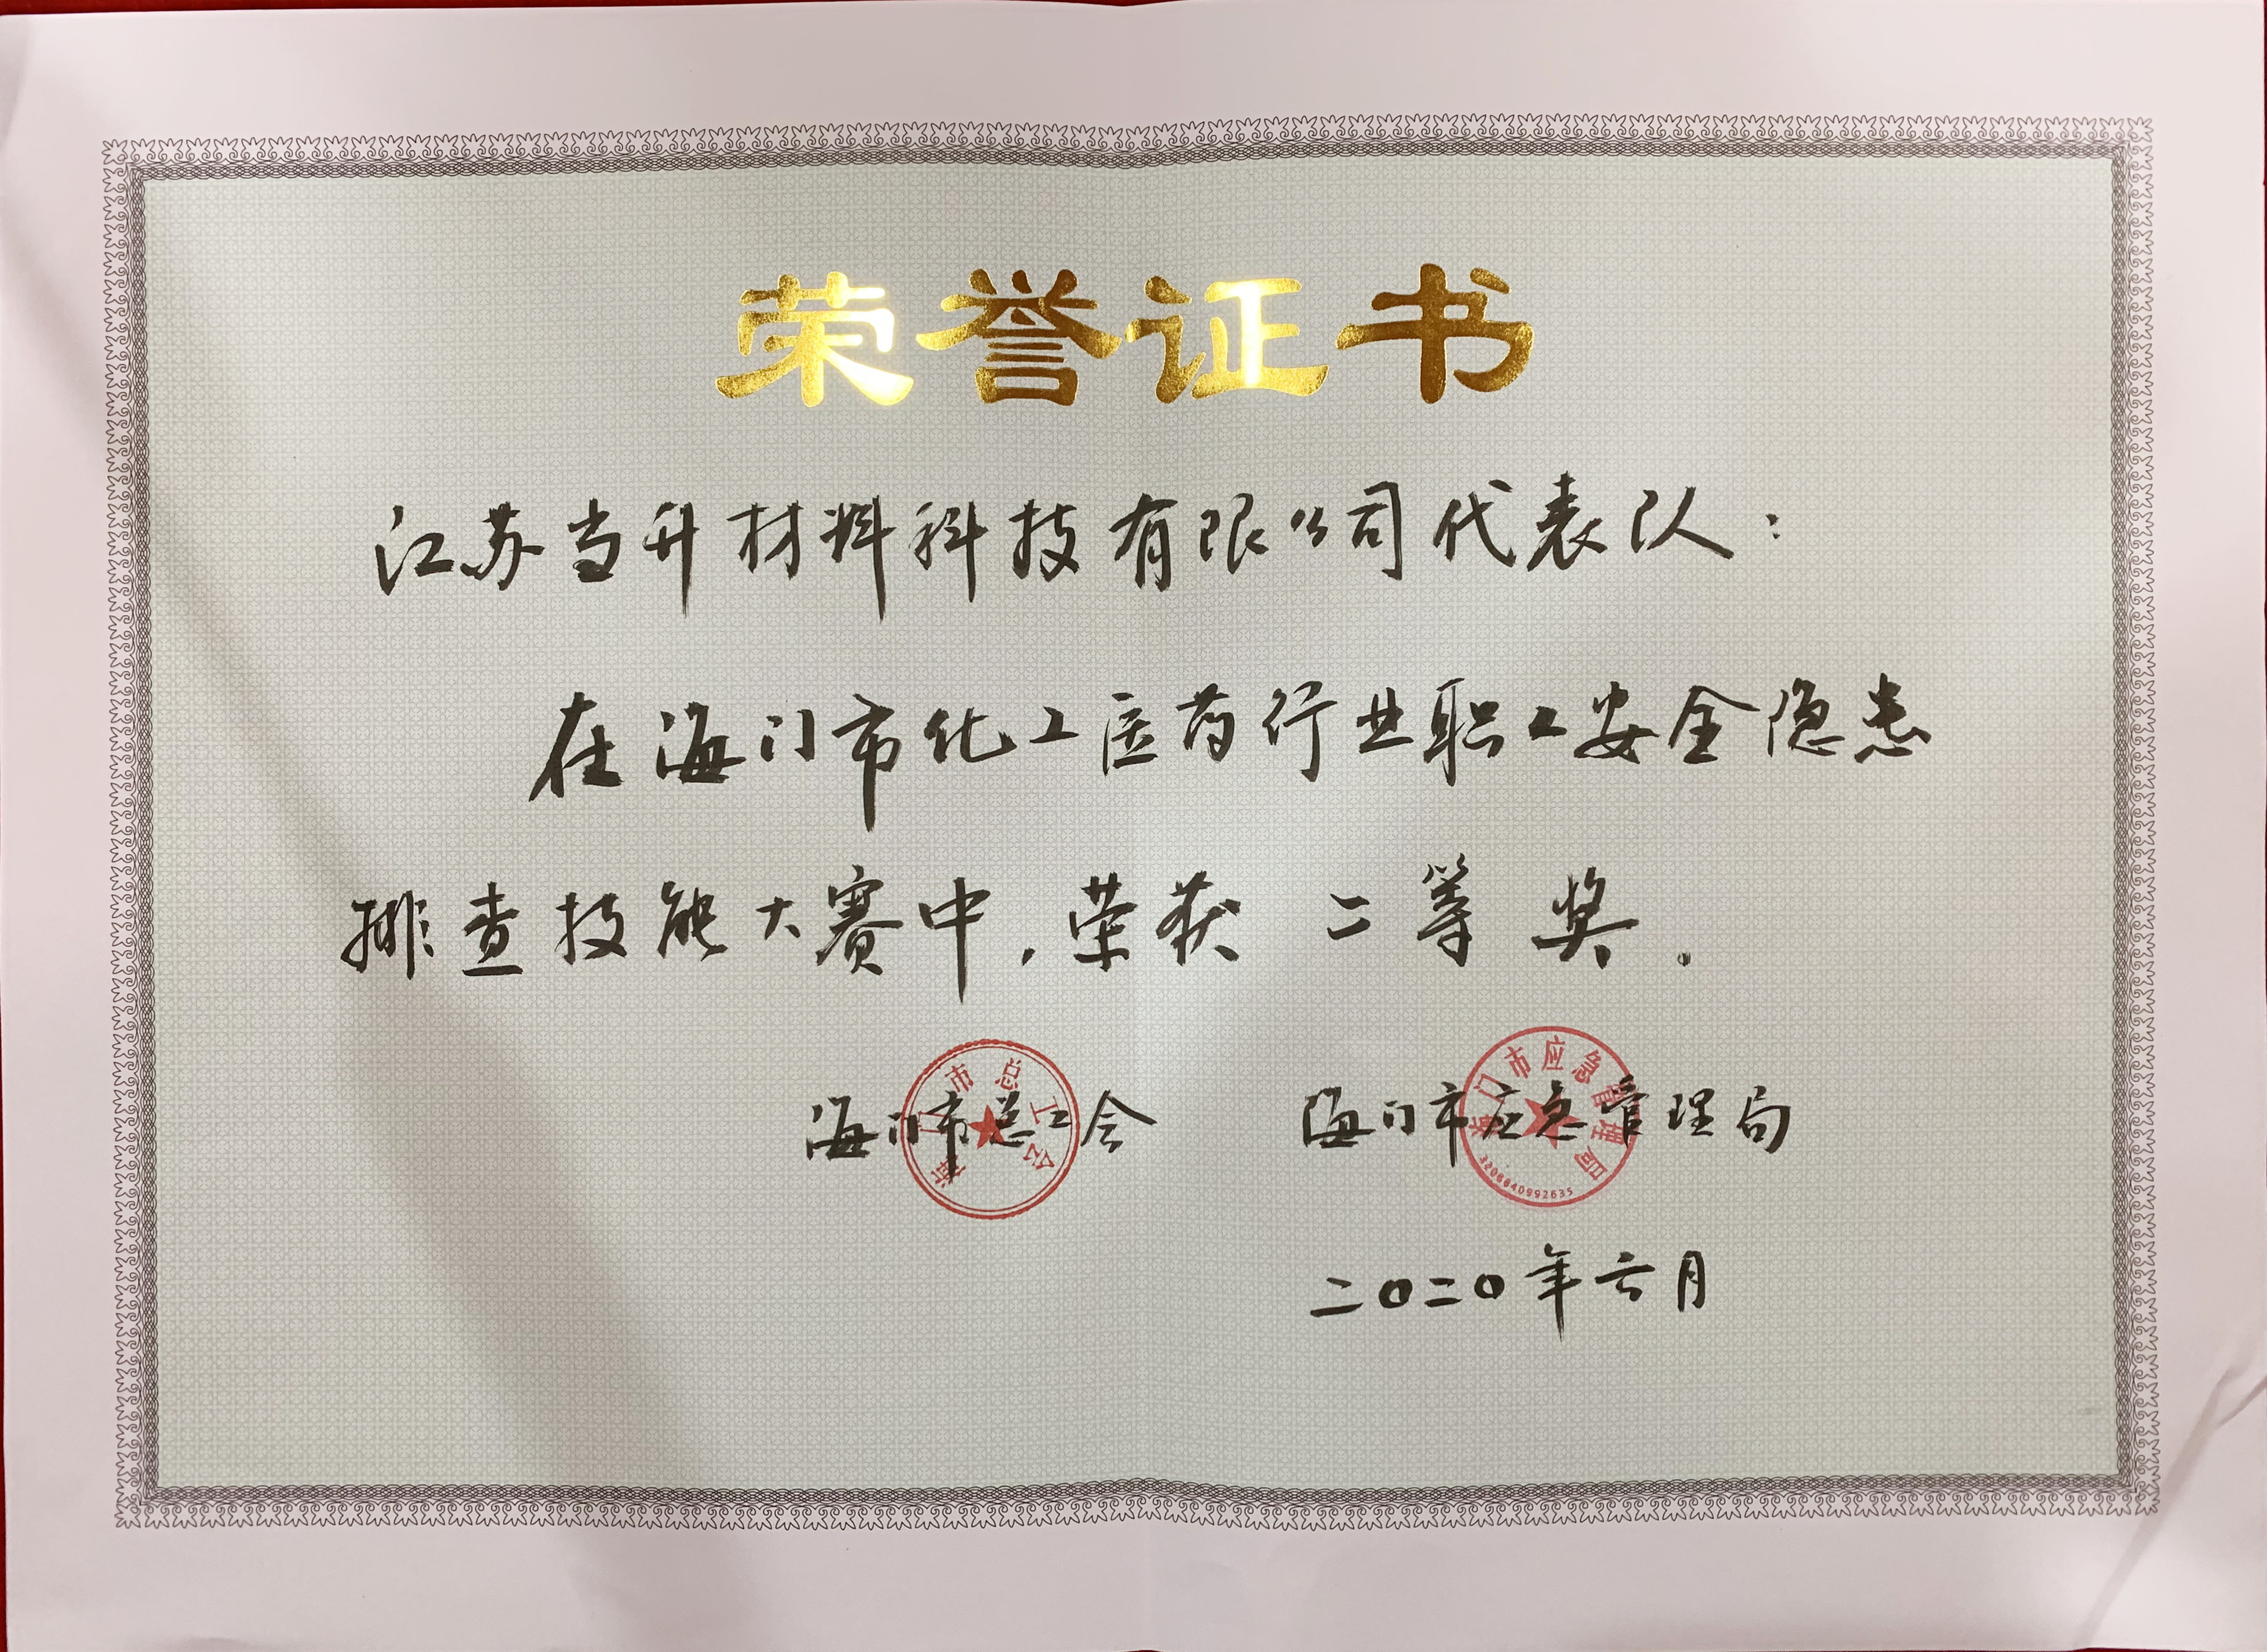 荣誉证书
江苏当升材料科技有限公司代表队：
在海门市化工医药行业职工安全隐患
排查技能大赛中，荣获 二等奖.
海门市总工会 海门市应急管理局
海门市总工会
海门市应急管理局
3206840992635
二〇二〇年六月